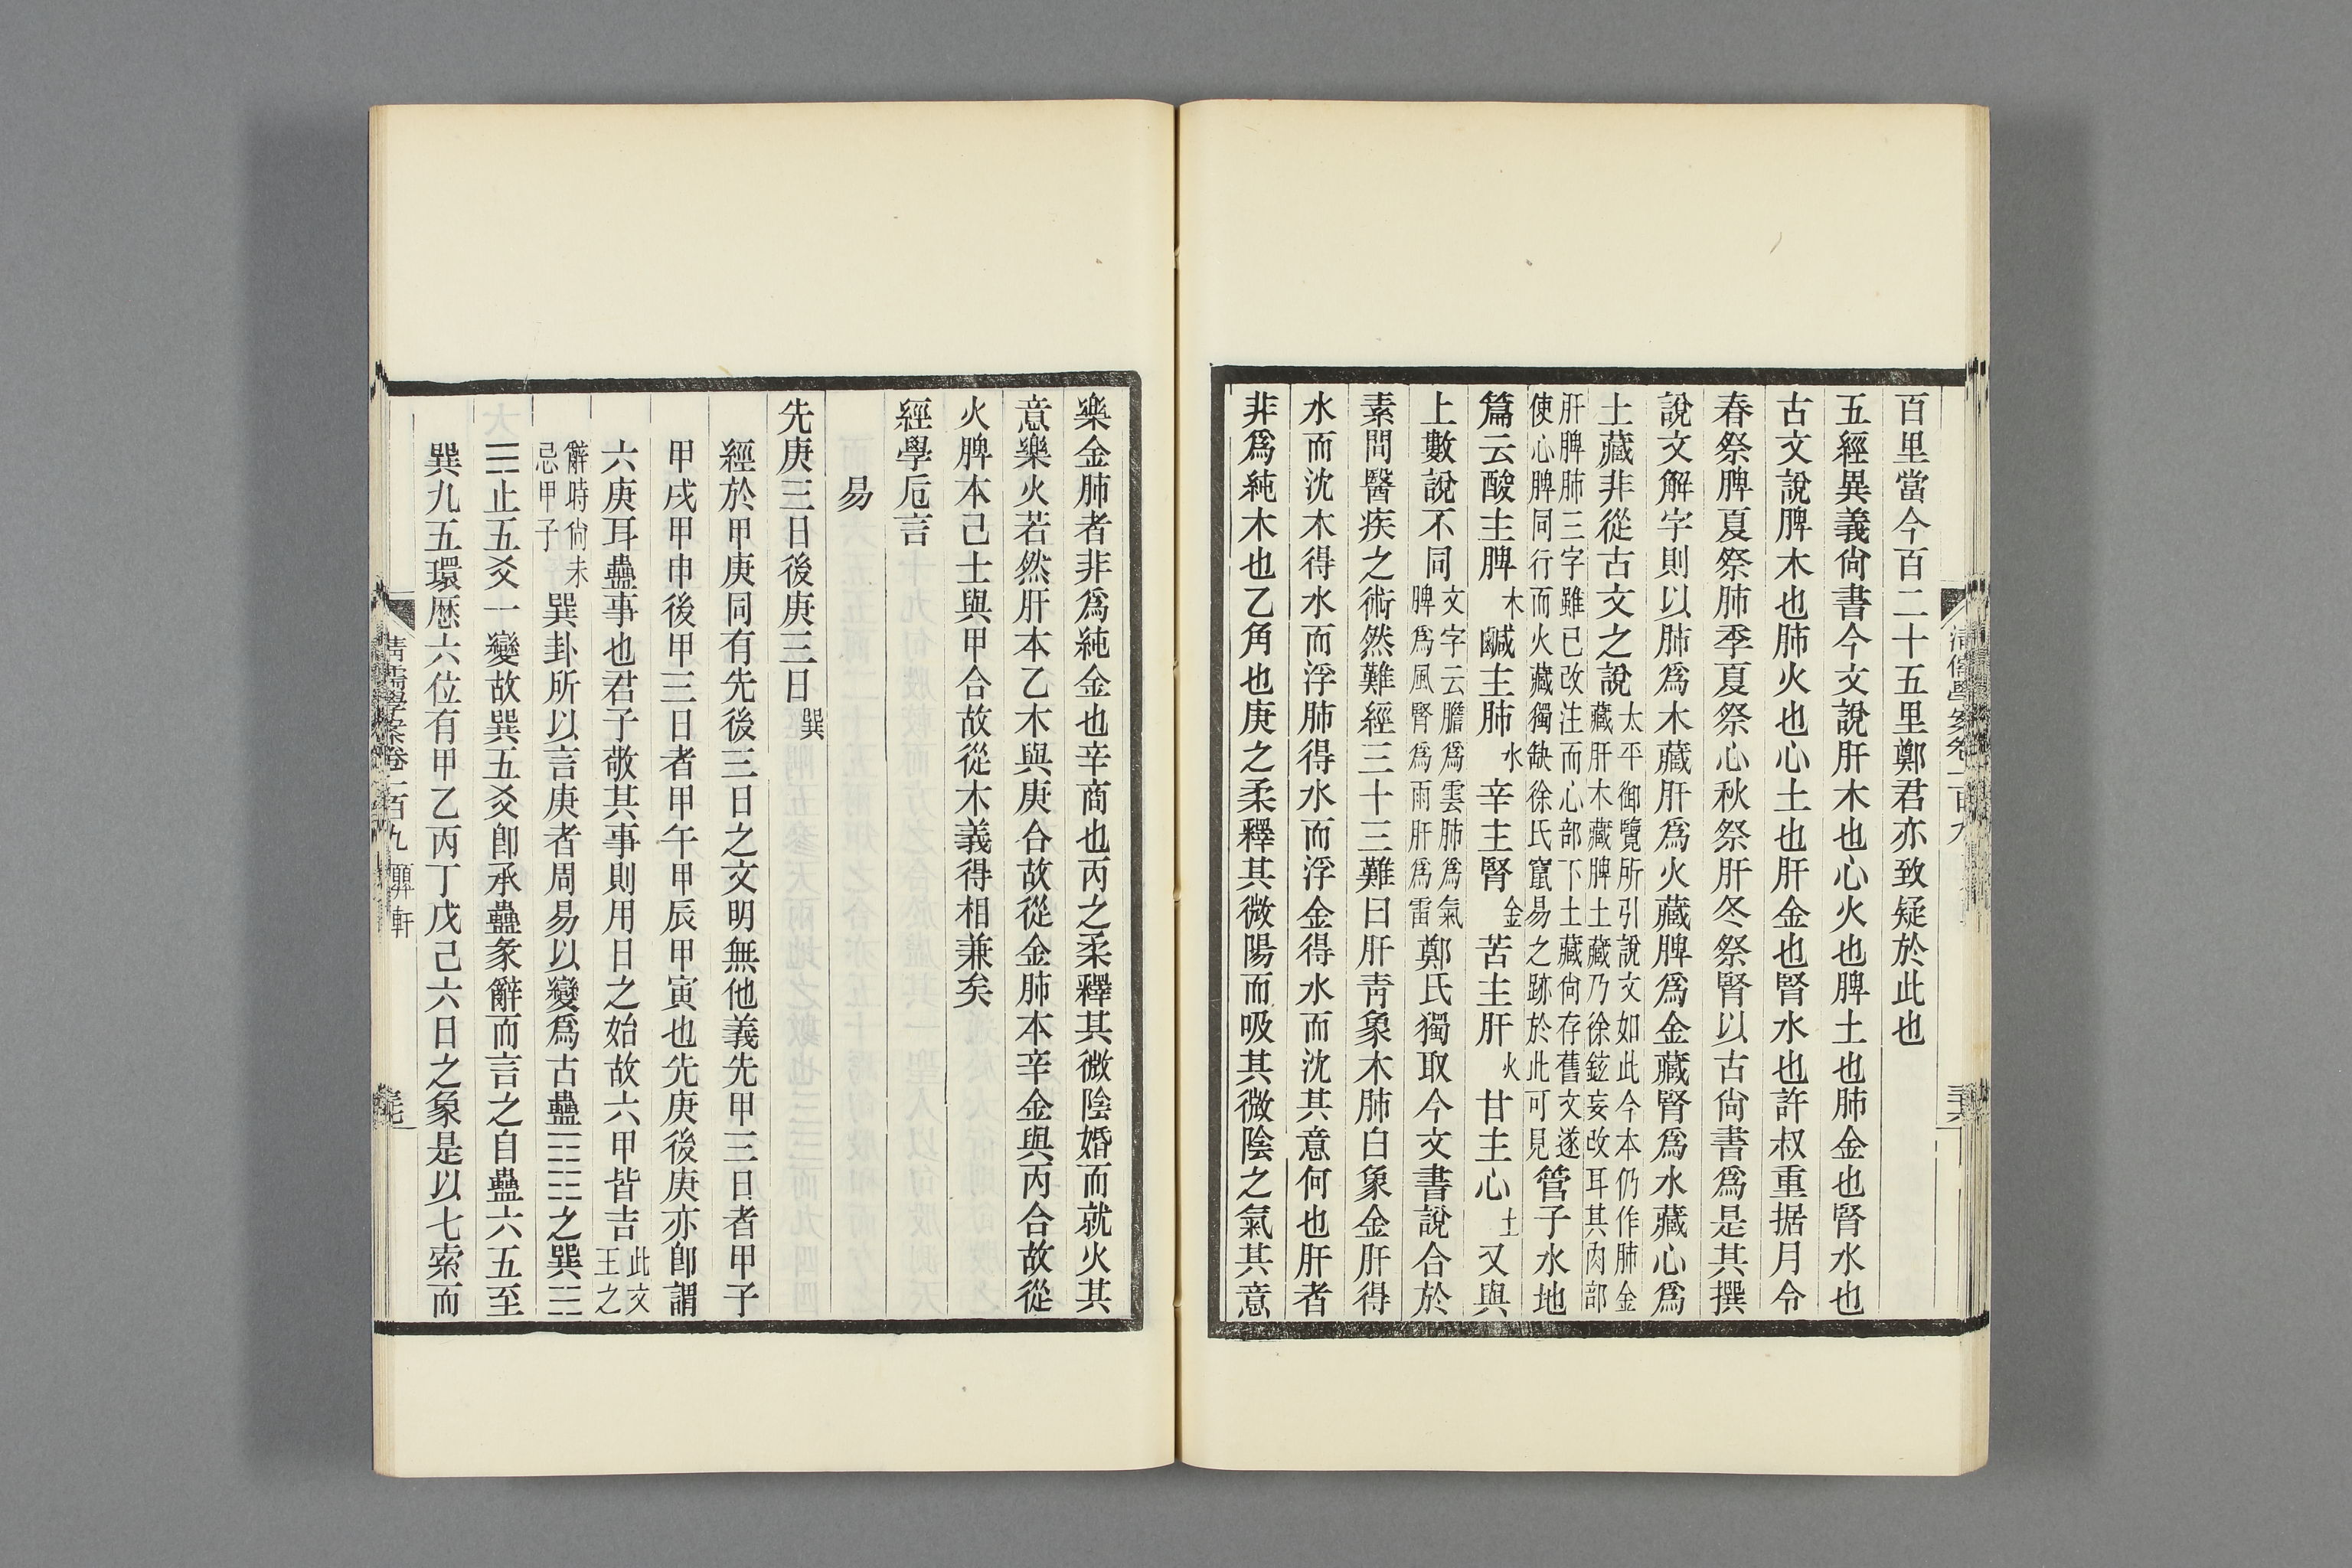 百里當今百二十五里鄭君亦致疑於此也
五經異義尙書今文說肝木也心火也脾土也肺金也腎水也
古文說脾木也肺火也心土也肝金也腎水也許叔重据月令
春祭脾夏祭肺季夏祭心秋祭肝冬祭腎以古尙書爲是其撰
說文解字則以肺爲木藏肝爲火藏脾爲金藏腎爲水藏心爲
土藏非從古文之說太平御覽所引說文如此今本仍作肺金藏肝木藏脾土藏乃徐鉉妄改耳其肉部
肝脾肺三字雖已改注而心部下土藏尙存舊文遂使心脾同行而火藏獨缺徐氏竄易之跡於此可見管子水地
篇云酸主脾木鹹主肺水辛主腎金苦主肝火甘主心土又與
上數說不同文字云膽爲雲肺爲氣脾爲風腎爲雨肝爲雷鄭氏獨取今文書說合於
素問醫疾之術然難經三十三難曰肝靑象木肺白象金肝得
水而沈木得水而浮肺得水而浮金得水而沈其意何也肝者
非爲純木也乙角也庚之柔釋其微陽而吸其微陰之氣其意
樂金肺者非爲純金也辛商也丙之柔釋其微陰婚而就火其
意樂火若然肝本乙木與庚合故從金肺本辛金與丙合故從
火脾本己土與甲合故從木義得相兼矣
經學卮言
易
先庚三日後庚三日巽
經於甲庚同有先後三日之文明無他義先甲三日者甲子
甲戌甲申後甲三日者甲午甲辰甲寅也先庚後庚亦卽謂
六庚耳蠱事也君子敬其事則用日之始故六甲皆吉此文王之
辭時尙未忌甲子巽卦所以言庚者周易以變爲古蠱☶☴之巽☴
☴止五爻一變故巽五爻卽承蠱彖辭而言之自蠱六五至
巽九五環歷六位有甲乙丙丁戊己六日之象是以七索而
淸儒學案卷一百九 顨軒